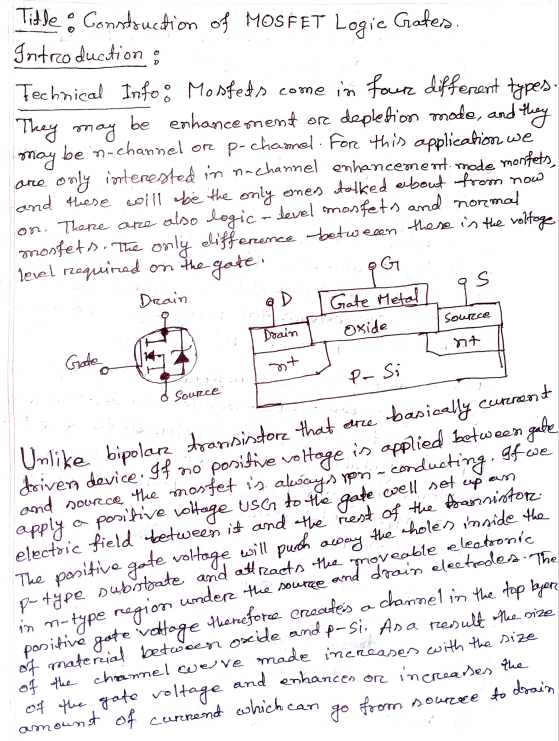 Title : Construction of MOSFET Logic Gates.
Introduction :
Technical Info : Mosfets come in four different types.
They may be enhancement or depletion mode, and they
may be n-channel or p-channel. For this application we
are only interested in n-channel enhancement mode mosfets,
and these will be the only ones talked about from now
on. There are also logic-level mosfets and normal
mosfets. The only difference between these is the voltage
level required on the gate.
Drain
Gate
Source
D
G
S
Drain
Gate Metal
Source
Oxide
n+
n+
P-Si
Unlike bipolar transistor that are basically current
driven device. If no positive voltage is applied between gate
and source the mosfet is always non-conducting. If we
apply a positive voltage USG to the gate well set up an
electric field between it and the rest of the transistor.
The positive gate voltage will push away the holes inside the
p-type substrate and attracts the moveable electronic
in n-type region under the source and drain electrodes. The
positive gate voltage therefore creates a channel in the top layer
of material between oxide and p-Si. As a result the size
of the channel we've made increases with the size
of the gate voltage and enhances or increases the
amount of current which can go from source to drain